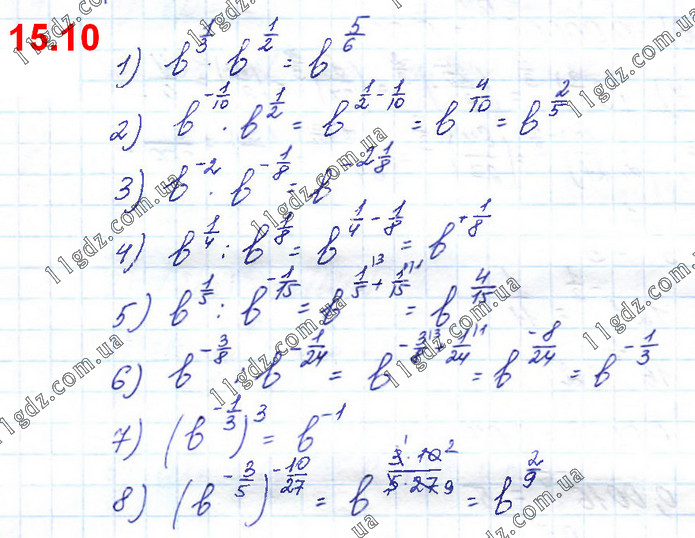 15.10
1) b^{1/3} · b^{1/2} = b^{5/6}
2) b^{-1/10} · b^{1/2} = b^{1/2 - 1/10} = b^{4/10} = b^{2/5}
3) b^{-2} · b^{-1/8} = b^{-2 1/8}
4) b^{1/4} : b^{1/8} = b^{1/4 - 1/8} = b^{+1/8}
5) b^{1/5} : b^{-1/15} = b^{1/5 \3 + 1/15 \1} = b^{4/15}
6) b^{-3/8} : b^{-1/24} = b^{-3/8 \3 + 1/24 \1} = b^{-8/24} = b^{-1/3}
7) (b^{-1/3})^3 = b^{-1}
8) (b^{-3/5})^{-10/27} = b^{3 1 · 10 2 / 5 · 27 9} = b^{2/9}
11gdz.com.ua
11gdz.com.ua
11gdz.com.ua
11gdz.com.ua
11gdz.com.ua
11gdz.com.ua
11gdz.com.ua
11gdz.com.ua
11gdz.com.ua